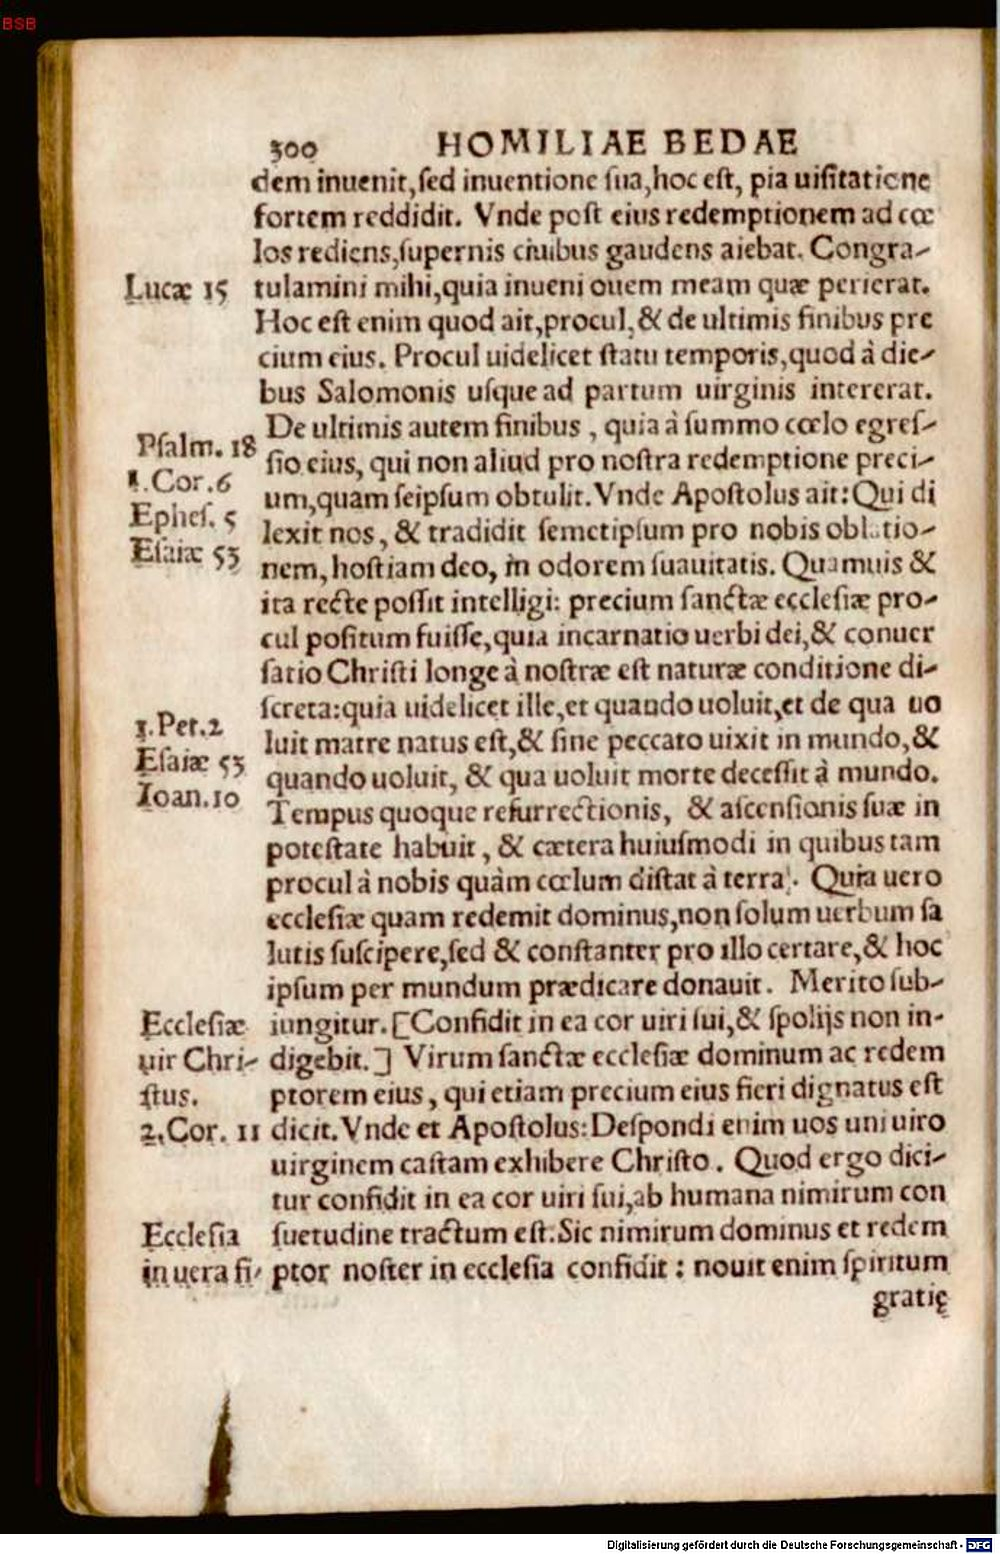 BSB
300 HOMILIAE BEDAE
dem inuenit, sed inuentione sua, hoc est, pia uisitatione
fortem reddidit. Vnde post eius redemptionem ad cœ
los rediens, supernis ciuibus gaudens aiebat. Congra-
Lucæ 15 tulamini mihi, quia inueni ouem meam quæ perierat.
Hoc est enim quod ait, procul, & de ultimis finibus pre
cium eius. Procul uidelicet statu temporis, quod à die-
bus Salomonis usque ad partum uirginis intererat.
De ultimis autem finibus, quia à summo cœlo egres-
Psalm. 18 sio eius, qui non aliud pro nostra redemptione preci-
1. Cor. 6 um, quam seipsum obtulit. Vnde Apostolus ait: Qui di
Ephes. 5 lexit nos, & tradidit semetipsum pro nobis oblatio-
Esaiæ 53 nem, hostiam deo, in odorem suauitatis. Quamuis &
ita recte possit intelligi: precium sanctæ ecclesiæ pro-
cul positum fuisse, quia incarnatio uerbi dei, & conuer
satio Christi longe à nostræ est naturæ conditione di-
screta: quia uidelicet ille, et quando uoluit, et de qua uo
1. Pet. 2 luit matre natus est, & sine peccato uixit in mundo, &
Esaiæ 53 quando uoluit, & qua uoluit morte decessit à mundo.
Ioan. 10 Tempus quoque resurrectionis, & ascensionis suæ in
potestate habuit, & cætera huiusmodi in quibus tam
procul à nobis quàm cœlum distat à terra. Quia uero
ecclesiæ quam redemit dominus, non solum uerbum sa
lutis suscipere, sed & constanter pro illo certare, & hoc
ipsum per mundum prædicare donauit. Merito sub-
Ecclesiæ iungitur. [Confidit in ea cor uiri sui, & spolijs non in-
uir Chri- digebit.] Virum sanctæ ecclesiæ dominum ac redem
stus. ptorem eius, qui etiam precium eius fieri dignatus est
2. Cor. 11 dicit. Vnde et Apostolus: Despondi enim uos uni uiro
uirginem castam exhibere Christo. Quod ergo dici-
tur confidit in ea cor uiri sui, ab humana nimirum con
Ecclesia suetudine tractum est. Sic nimirum dominus et redem
in uera fi- ptor noster in ecclesia confidit: nouit enim spiritum
gratię
Digitalisierung gefördert durch die Deutsche Forschungsgemeinschaft - DFG